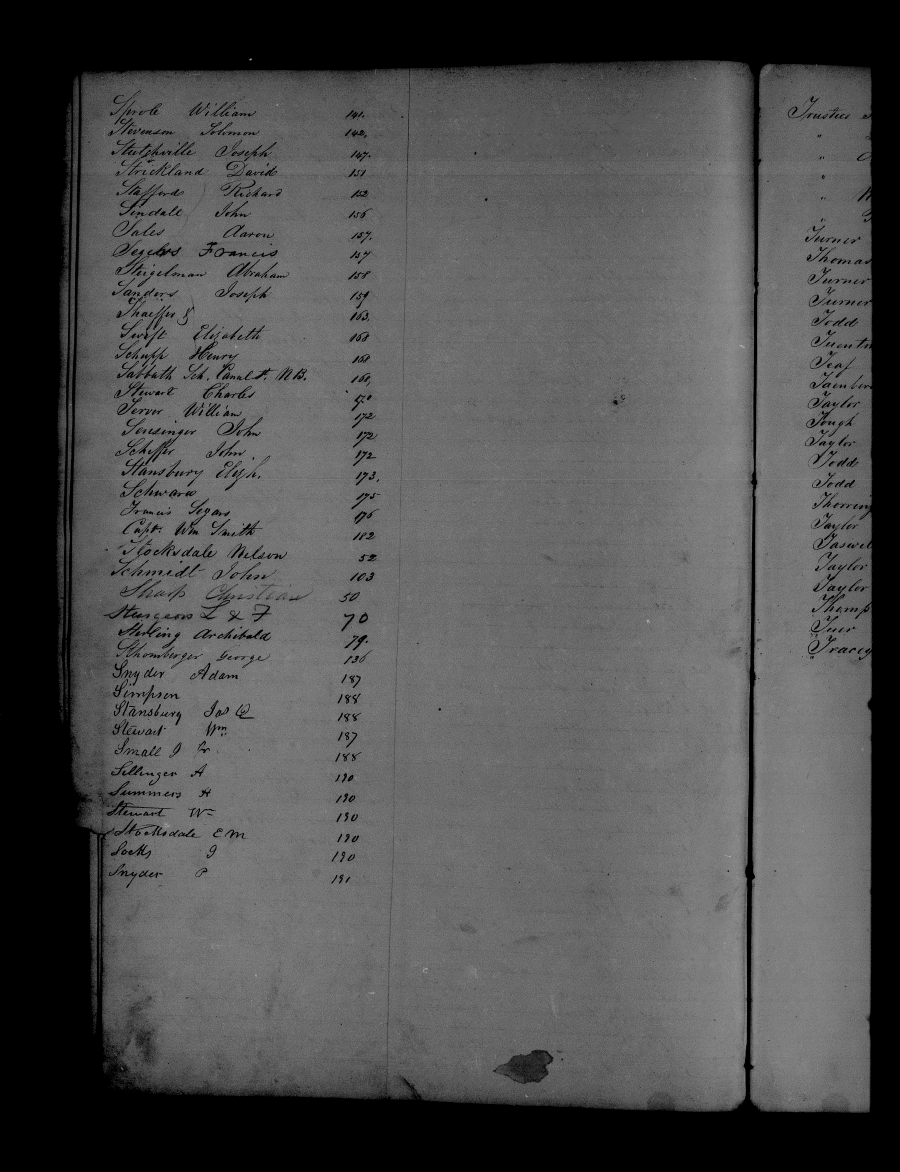 Sprole William 141.
Stevenson Solomon 142.
Stutzhville Joseph 147.
Strickland David 151
Staffords Richard 152
Sindale John 156
Sales Aaron 157.
Segers Francis 157
Steigelman Abraham 158
Sanders Joseph 159
Shaeffer 163.
Swift Elizabeth 168
Schupp Henry 168
Sabbath Sch. Canal St. N.B. 168,
Stewart Charles 170
Servor William 172
Sensinger John 172
Scheffer John. 172
Stansbury Elizh. 173.
Schwara 175
Francis Segars 176
Capt. Wm Smith 182
Stocksdale Nelson 52
Schmidt John 103
Sharp Christian 50
Sturgeons L & F 70
Sterling Archibald 79.
Sthomberger George 136
Snyder Adam 187
Simpson 188
Stansburg Jas 188
Stewart Wm 187
Small J 188
Sellinger A 190
Summers H 190
Stewart Wm 190
Stocksdale E M 190
Socks J 190
Snyder P 191
Trustees
"
"
"
"
"
Turner
Thomas
Turner
Turner
Todd
Teaf
Taylor
Tough
Taylor
Todd
Todd
Taylor
Taylor
Taylor
Tracey